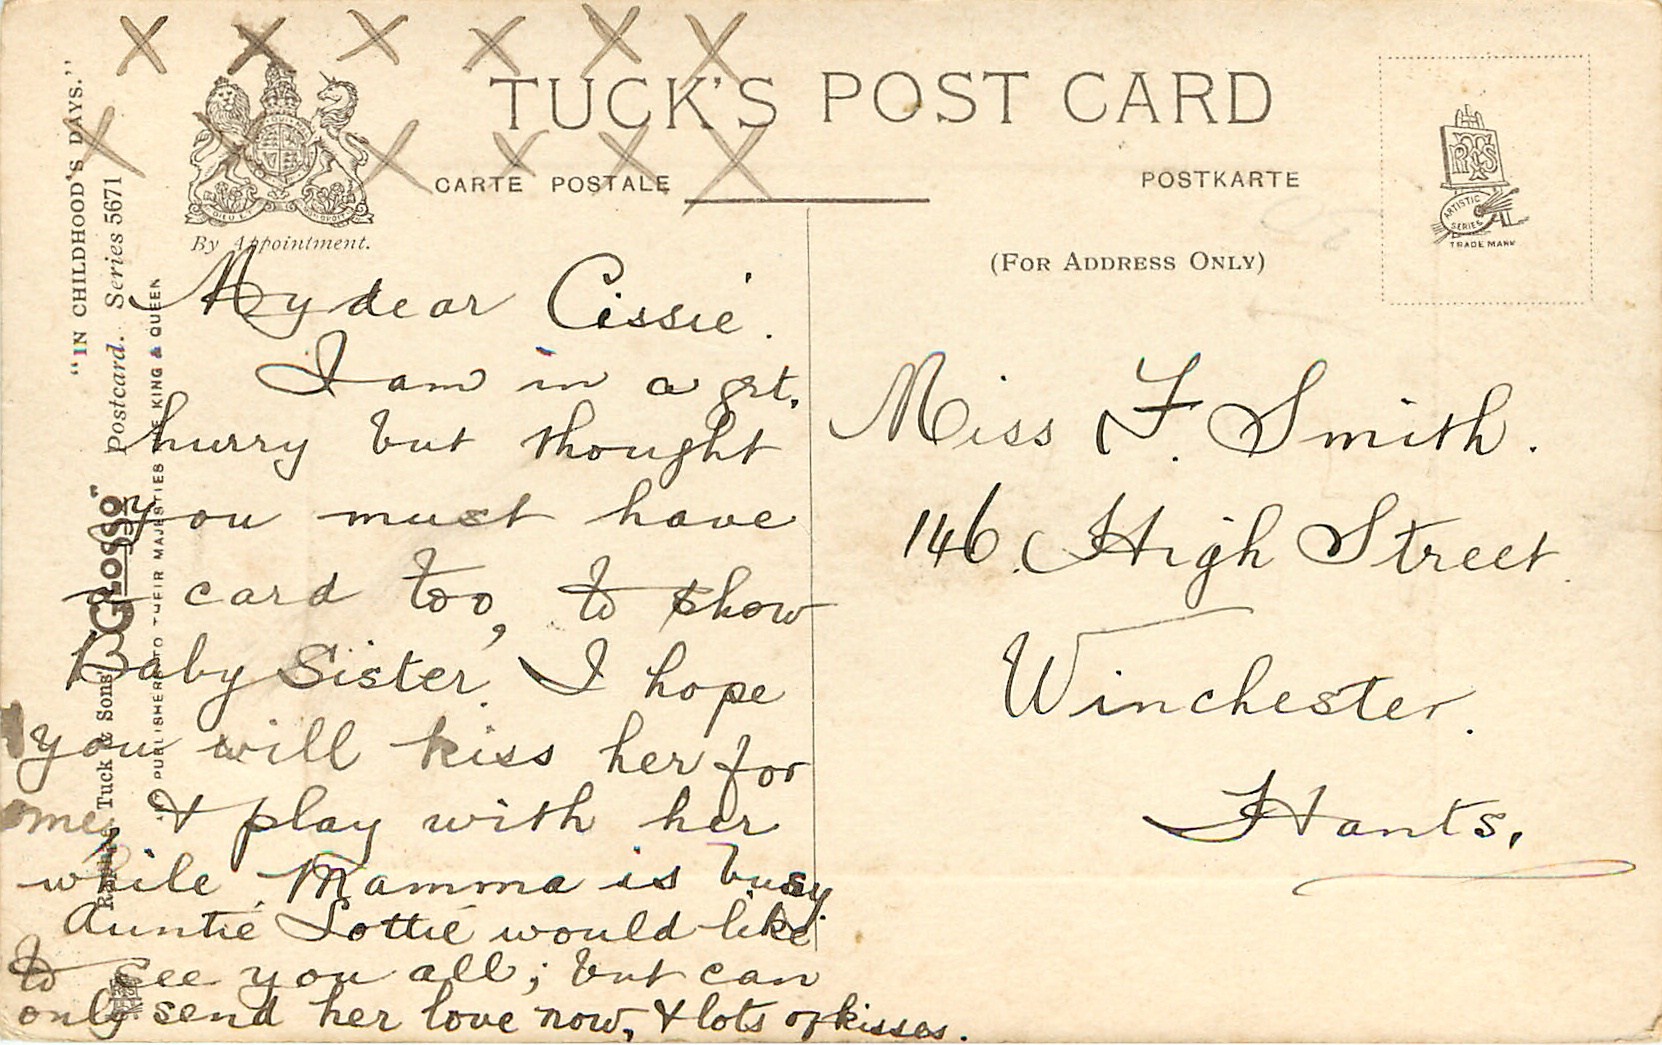 X X X X X X
TUCK'S POST CARD
X X X X X X X
CARTE POSTALE
POSTKARTE
(FOR ADDRESS ONLY)
By Appointment.
DIEU ET MON DROIT
RTS
ARTISTIC
SERIES
TRADE MARK
"IN CHILDHOOD'S DAYS."
Raphael Tuck & Sons' "GLOSSO" Postcard. Series 5671
ART PUBLISHERS TO THEIR MAJESTIES THE KING & QUEEN
My dear Cissie.
I am in a grt.
hurry but thought
you must have
a card too, to show
Baby Sister. I hope
you will kiss her for
me, & play with her
while Mamma is busy
Auntie Lottie would like
to see you all; but can
only send her love now, & lots of kisses.
Miss F. Smith.
146. High Street.
Winchester.
Hants.